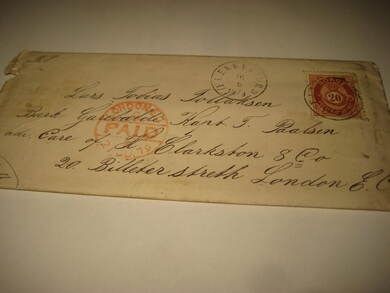 Lars Tobias Tollaksen
Bark Garibaldi Kapt. T. Paulsen
adr. Care of H. Clarkston & Co
20. Billeter Streth London E.C
LONDON
PAID
20